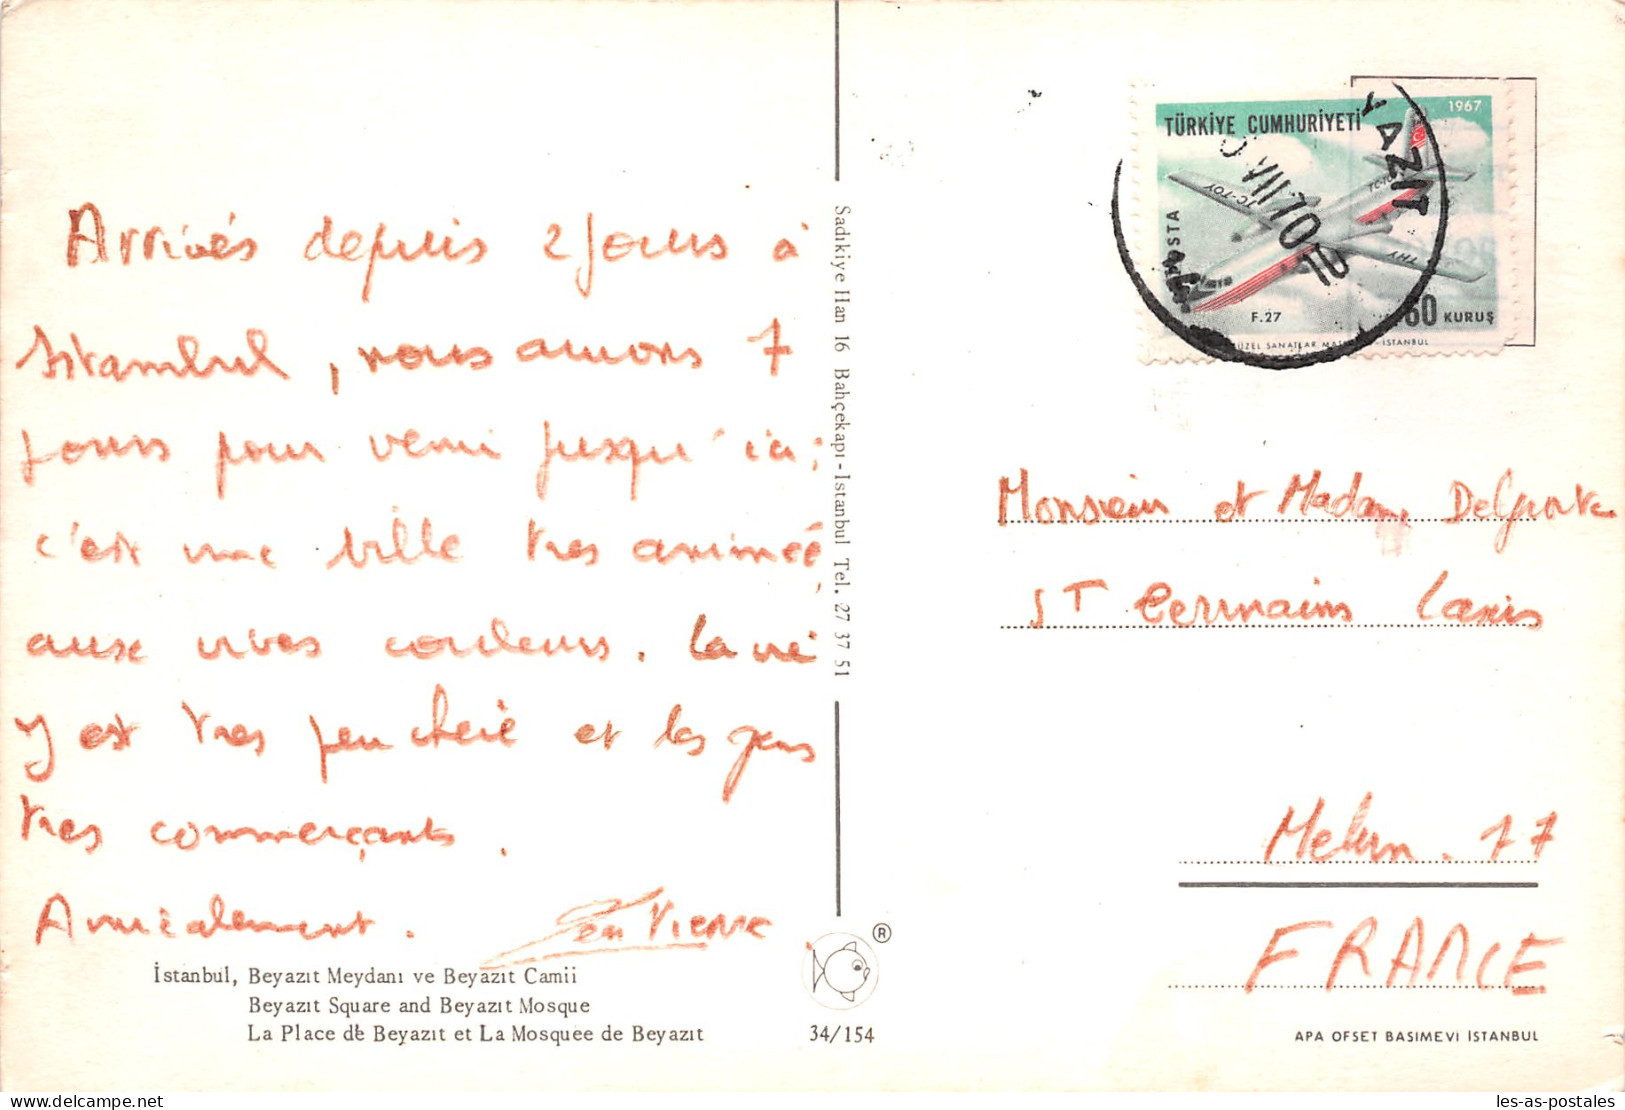 Arrivés depuis 2 jours à
Istambul, nous avons 7
jours pour venir jusqu'ici ;
c'est une ville tres animée
aux vives couleurs. La vie
y est tres peu chere et les gens
tres commerçants.
Amicalement. Jean Pierre
İstanbul, Beyazıt Meydanı ve Beyazıt Camii
Beyazıt Square and Beyazıt Mosque
La Place de Beyazıt et La Mosquee de Beyazıt
34/154
®
Sadıkiye Han 16 Bahçekapı-Istanbul Tel. 27 37 51
1967
TÜRKİYE CUMHURİYETİ
POSTA
TC-TOY
THY
F.27
60 KURUŞ
İSTANBUL
YAZIT
Monsieur et Madame Delporte
ST Germains Laxis
Melun . 77
FRANCE
APA OFSET BASIMEVİ İSTANBUL
les-as-postales